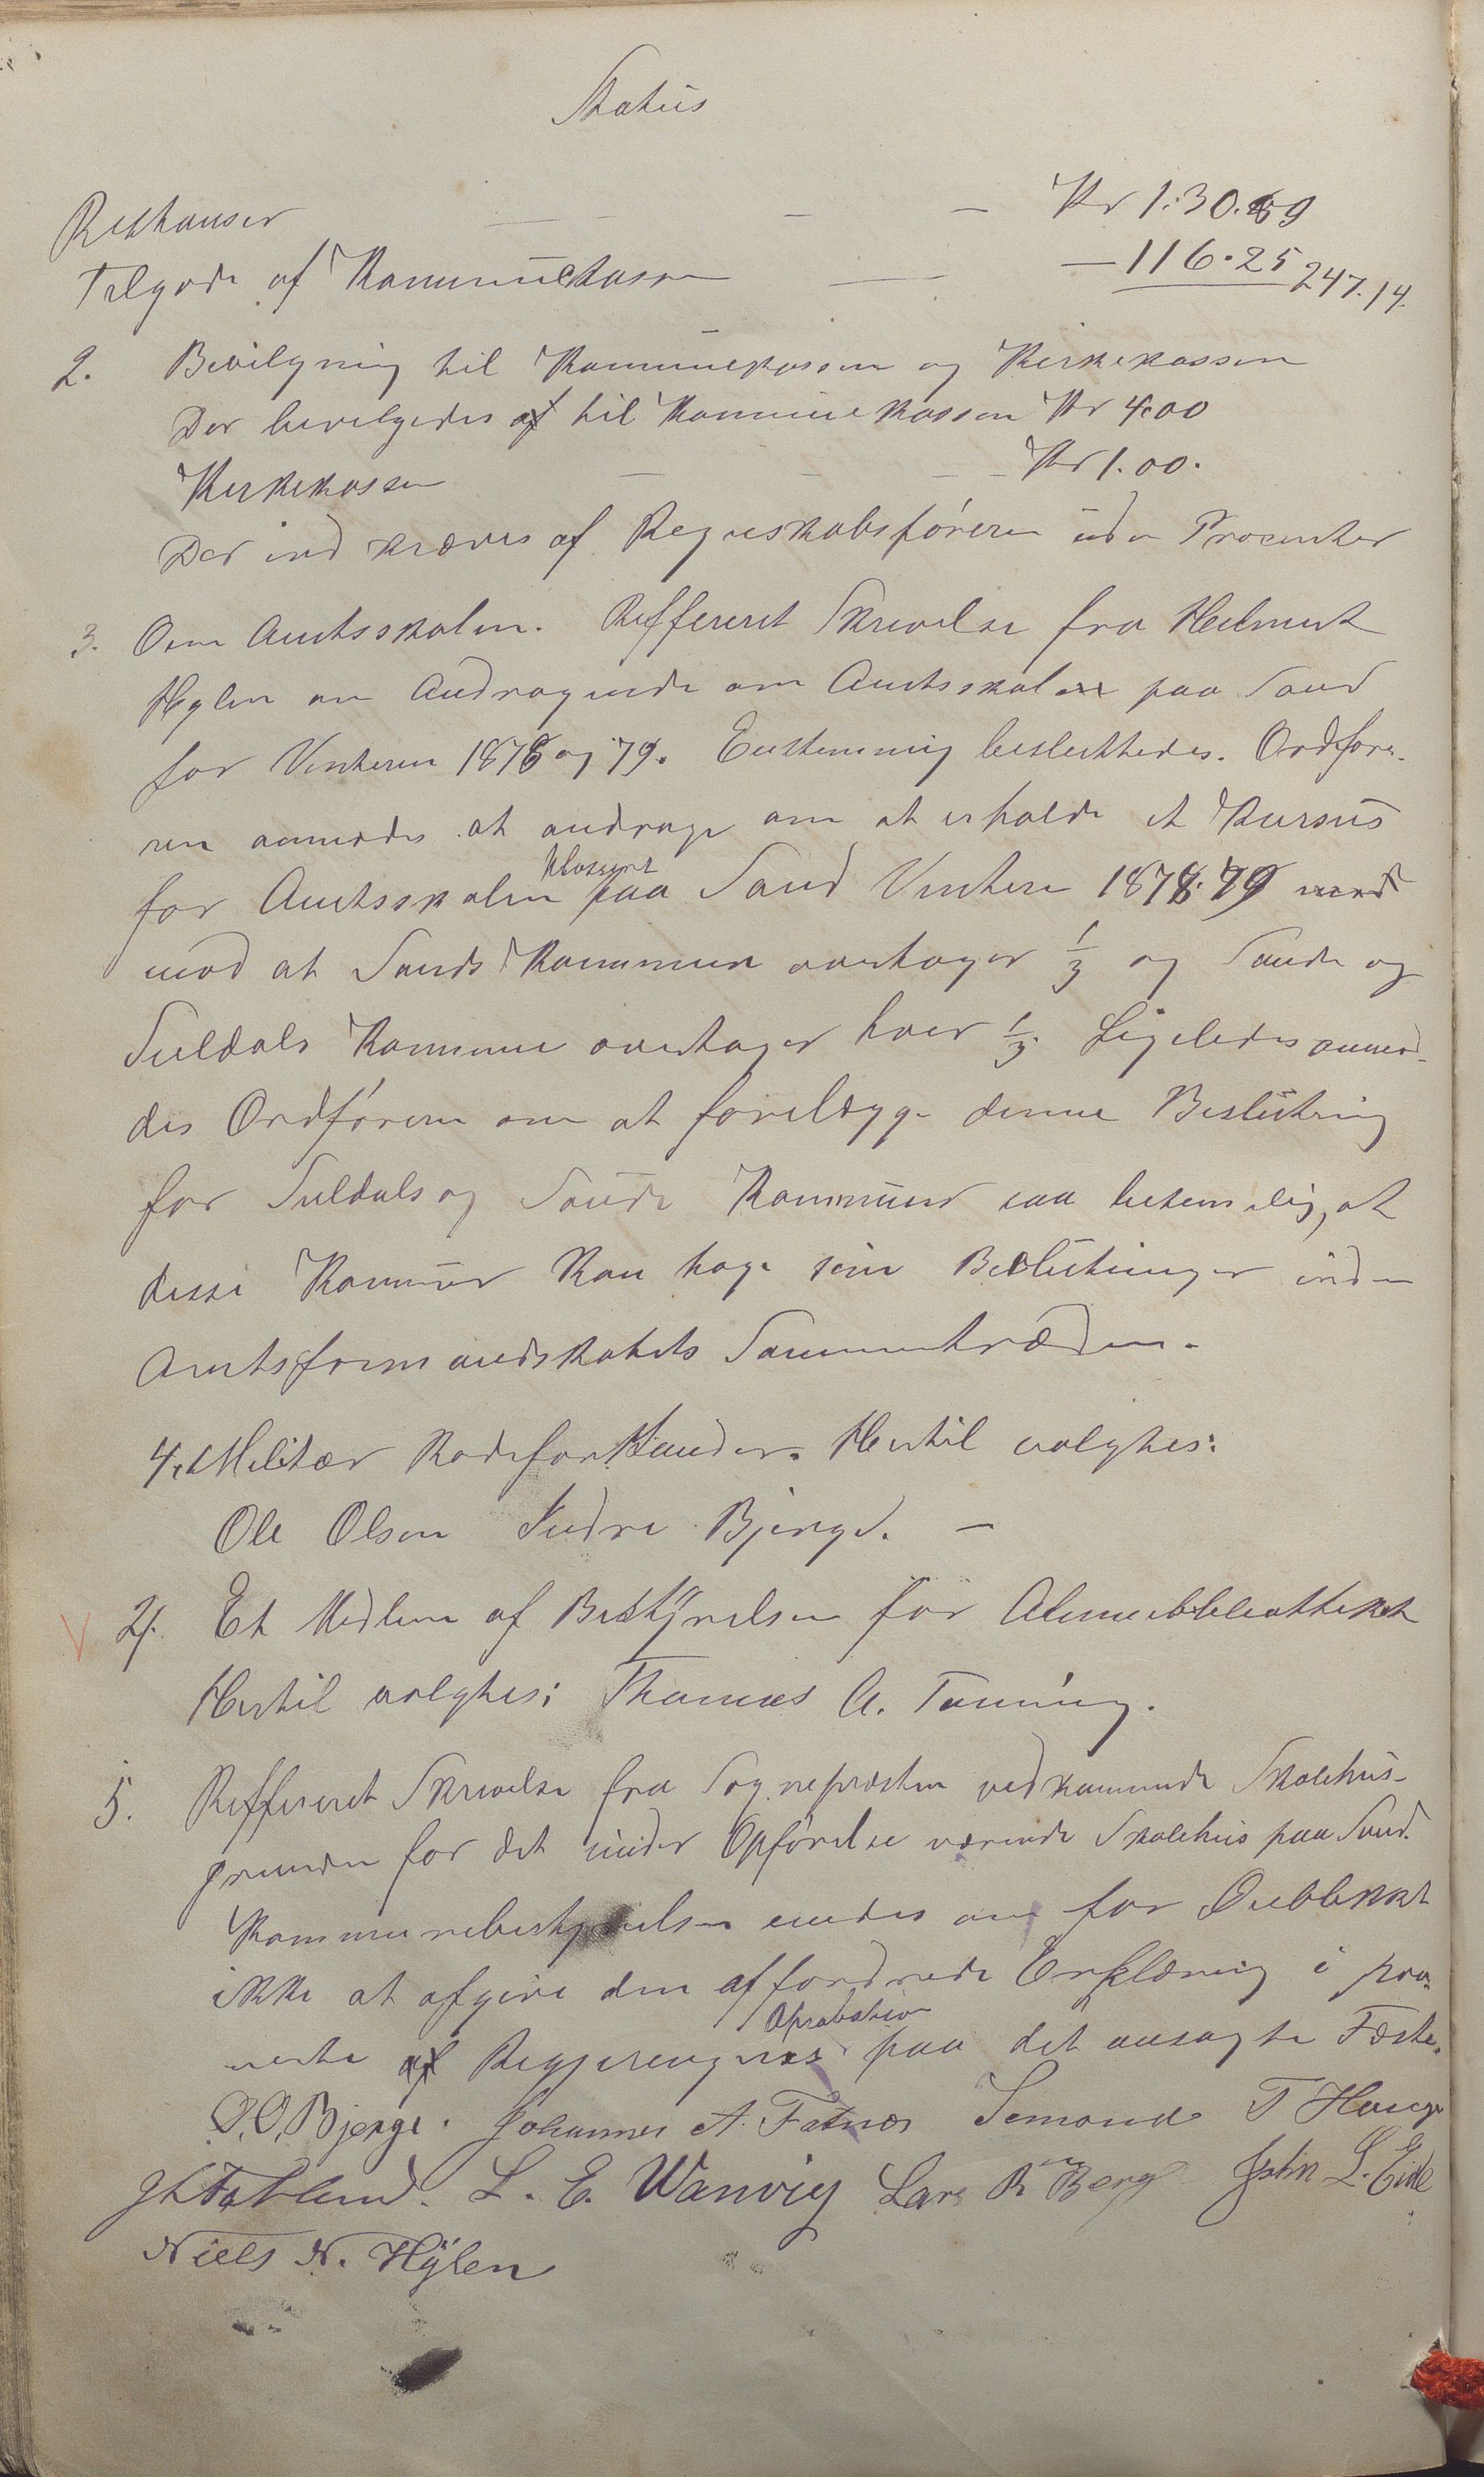 Status
Restancer — — — — Kr 1.30.89
Tilgode af Kommunekassen — — 116.25 247.14.
2. Bevilgning til Kommunekassen og Kirkekassen
Der bevilgedes af til Kommunekassen Kr 4.00
Kirkekassen — — — Kr 1.00.
Der ind kræves af Regnskabsføreren uden Procenter
3. Om Amtsskolen. Reffereret Skrivelse fra Helmert
Hylen om Andragende om Amtsskolen paa Sand
for Vinteren 1878 og 79. Enstemmig besluttedes. Ordføre-
ren anmodes at andrage om at erholde et Kursus
for Amtsskolen paa Sand Vinteren 1878.79 med
mod at Sands Kommune overtager 1/3 og Saude og
Suldals Kommune overtager hver 1/3. Ligeledes anmod-
des Ordføreren om at forelægge denne Beslutning
for Suldals og Saude Kommuner saa betimelig, at
disse Kommuner kan tage sine Beslutninger inden
Amtsformandskabets Sammentræden.
4. Militær Rodeforstander. Hertil valgtes:
Ole Olsen Indre Bjerge. —
V 4. Et Medlem af Bestyrelsen for Almuebibliotheket
Hertil valgtes: Thomas A. Tønning.
5. Reffereret Skrivelse fra Sognepræsten vedkommende Skolehus-
grunden for det under Opførelse værende Skolehus paa Sand.
Kommunebestyrelsen endes om for Øieblikket
ikke at afgive den affordrede Erklæring i paa-
vente af Regjeringens Aprobation paa det ansøgte Fæste.
O. O. Bjerge. Johannes A. Fatnes Simond T Hauge
L. E. Wanvig Lars R Berg John L. Eide
Niels N. Hylen